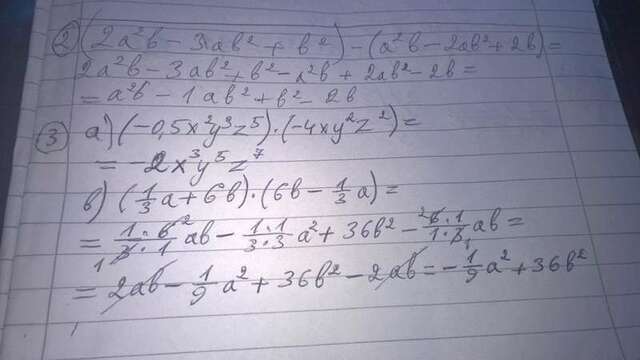 ② (2a²b - 3ab² + b²) - (a²b - 2ab² + 2b) =
2a²b - 3ab² + b² - a²b + 2ab² - 2b =
= a²b - 1ab² + b² - 2b
③ а) (-0,5x²y³z⁵) · (-4xy²z²) =
= -2x³y⁵z⁷
в) (1/3 a + 6b) · (6b - 1/3 a) =
= 1·6²/₁3·1 ab - 1·1/3·3 a² + 36b² - ²6·1/1·3₁ ab =
= 2ab - 1/9 a² + 36b² - 2ab = - 1/9 a² + 36b²